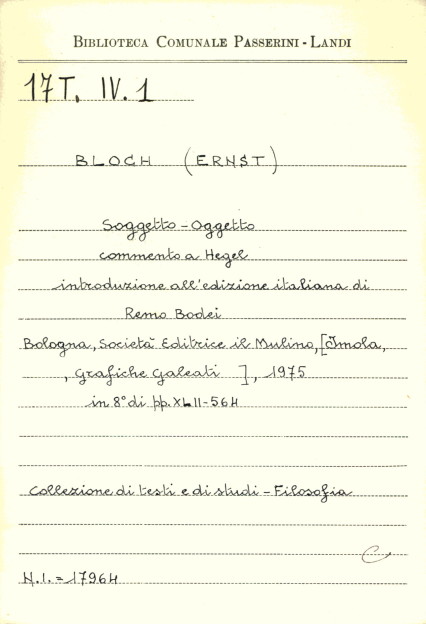 BIBLIOTECA COMUNALE PASSERINI - LANDI
17T. IV. 1
BLOCH (ERNST)
Soggetto - Oggetto
commento a Hegel
introduzione all'edizione italiana di
Remo Bodei
Bologna, Società Editrice il Mulino, [Imola,
, Grafiche Galeati ], 1975
in 8° di pp. XLII-564
Collezione di testi e di studi - Filosofia
C
N.I. = 17964